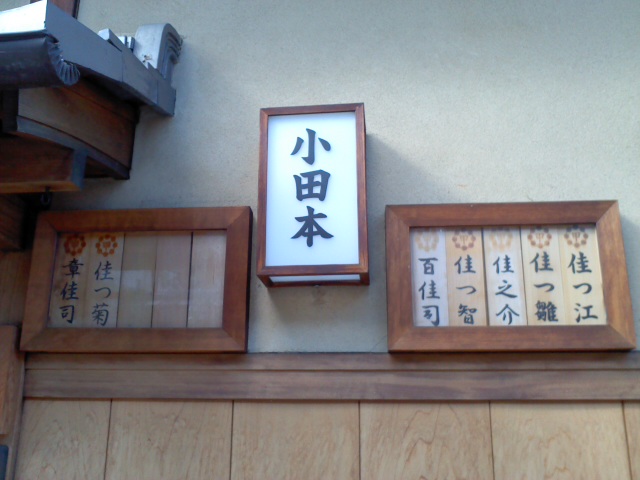 小田本
佳つ江
佳つ雛
佳之介
佳つ智
百佳司
佳つ菊
章佳司